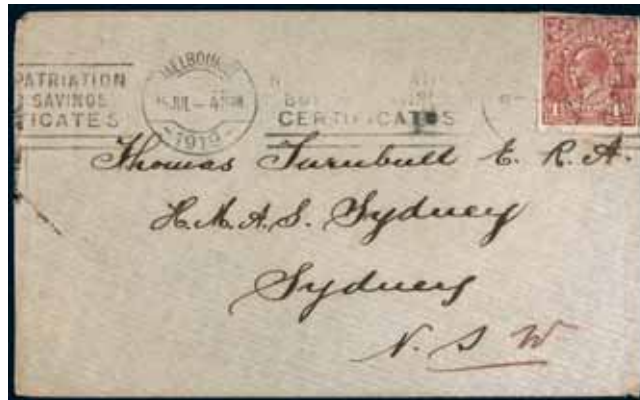 PATRIATION
SAVINGS
ICATES
MELBOURNE
15 JUL
1919
CERTIFICATES
Thomas Turnbull E. R. A.
H.M.A.S. Sydney
Sydney
N. S W